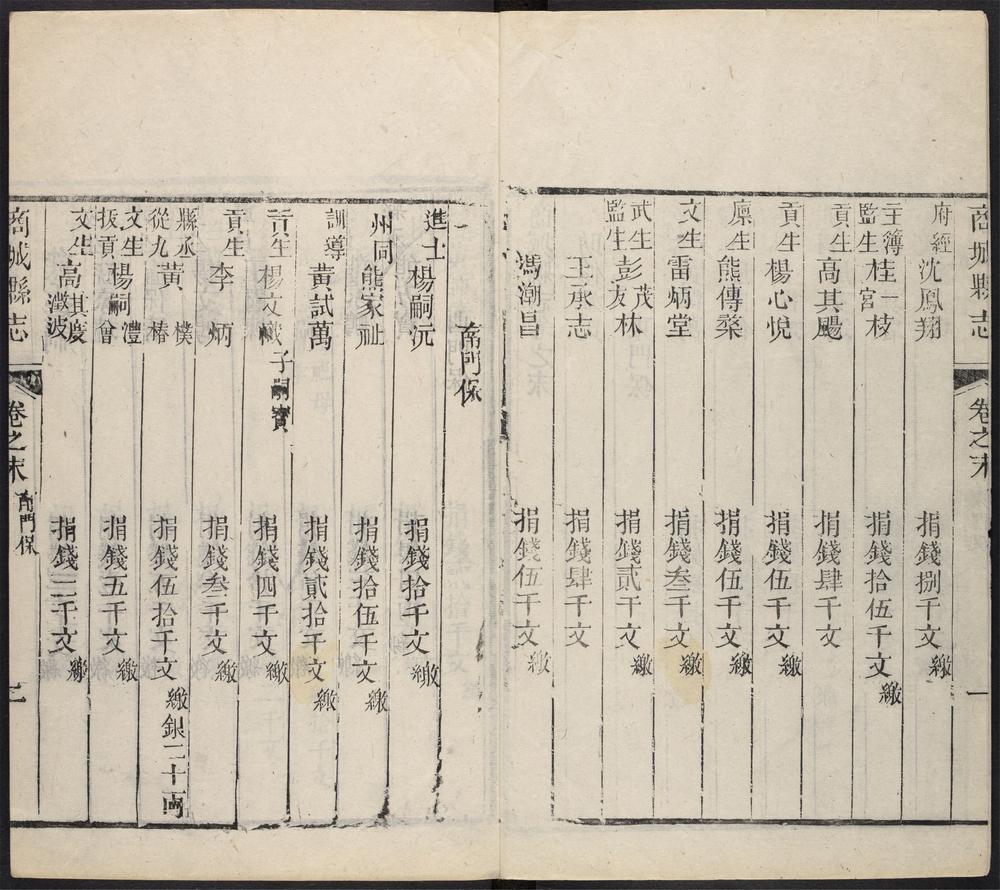 商城縣志 卷之末 一
府經 沈鳳翔 捐錢捌千文繳
主簿 監生 桂一枝 宮 捐錢拾伍千文繳
貢生 高其颺 捐錢肆千文
貢生 楊心悅 捐錢伍千文繳
廩生 熊傳棨 捐錢伍千文繳
文生 雷炳堂 捐錢叁千文繳
武生 監生 彭茂林 友 捐錢貳千文繳
王承志 捐錢肆千文
馮潮昌 捐錢伍千文繳
南門保
進士 楊嗣沅 捐錢拾千文繳
州同 熊家祉 捐錢拾伍千文繳
訓導 黃試萬 捐錢貳拾千文繳
貢生 楊文 子嗣寶 捐錢四千文繳
貢生 李炳 捐錢叁千文繳
縣丞 從九 黃樸 椿 捐錢伍拾千文繳銀二十両
文生 拔貢 楊嗣澧 曾 捐錢五千文繳
文生 高其度 澂波 捐錢三千文繳
商城縣志 卷之末 南門保 二